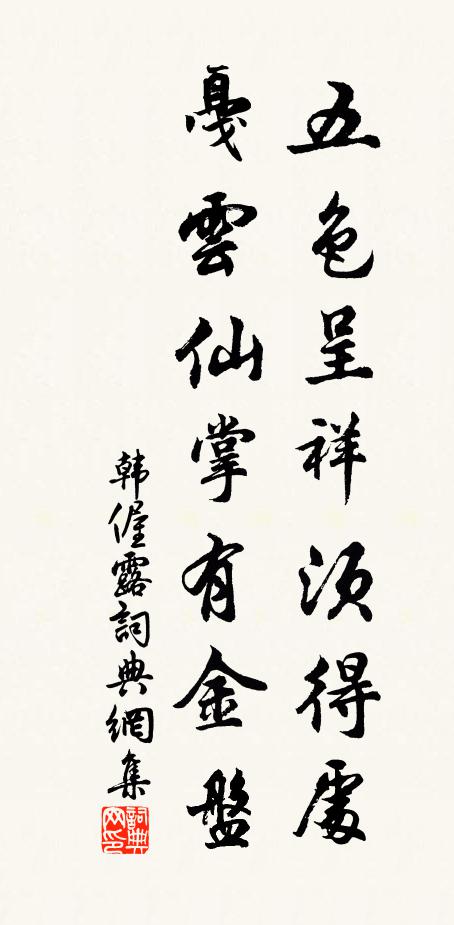 五色呈祥須得處
戛雲仙掌有金盤
韓偓露詞典網集
詞典網印